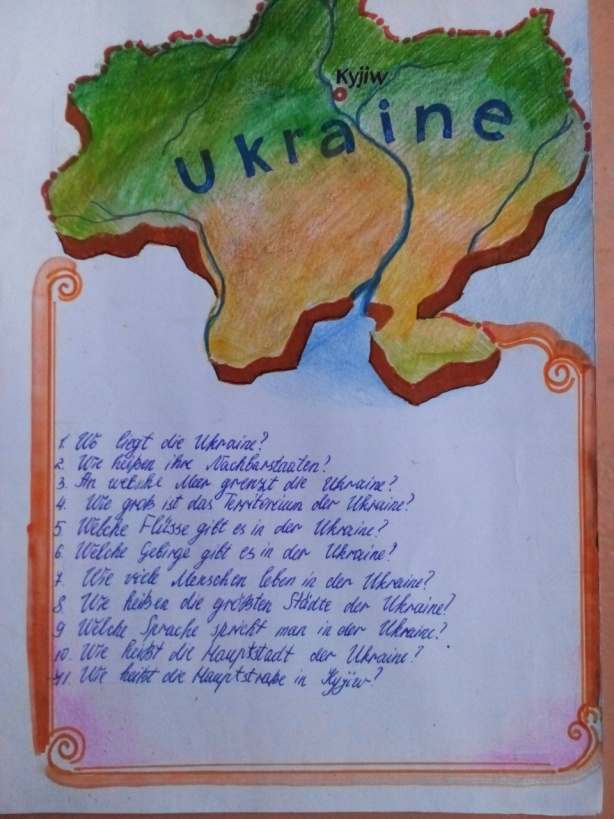 Kyjiw
Ukraine
1. Wo liegt die Ukraine?
2. Wie heißen ihre Nachbarstaaten?
3. An welche Meer grenzt die Ukraine?
4. Wie groß ist das Territorium der Ukraine?
5. Welche Flüsse gibt es in der Ukraine?
6. Welche Gebirge gibt es in der Ukraine?
7. Wie viele Menschen leben in der Ukraine?
8. Wie heißen die größten Städte der Ukraine?
9 Welche Sprache spricht man in der Ukraine?
10. Wie heißt die Hauptstadt der Ukraine?
11. Wie heißt die Hauptstraße in Kyjiw?